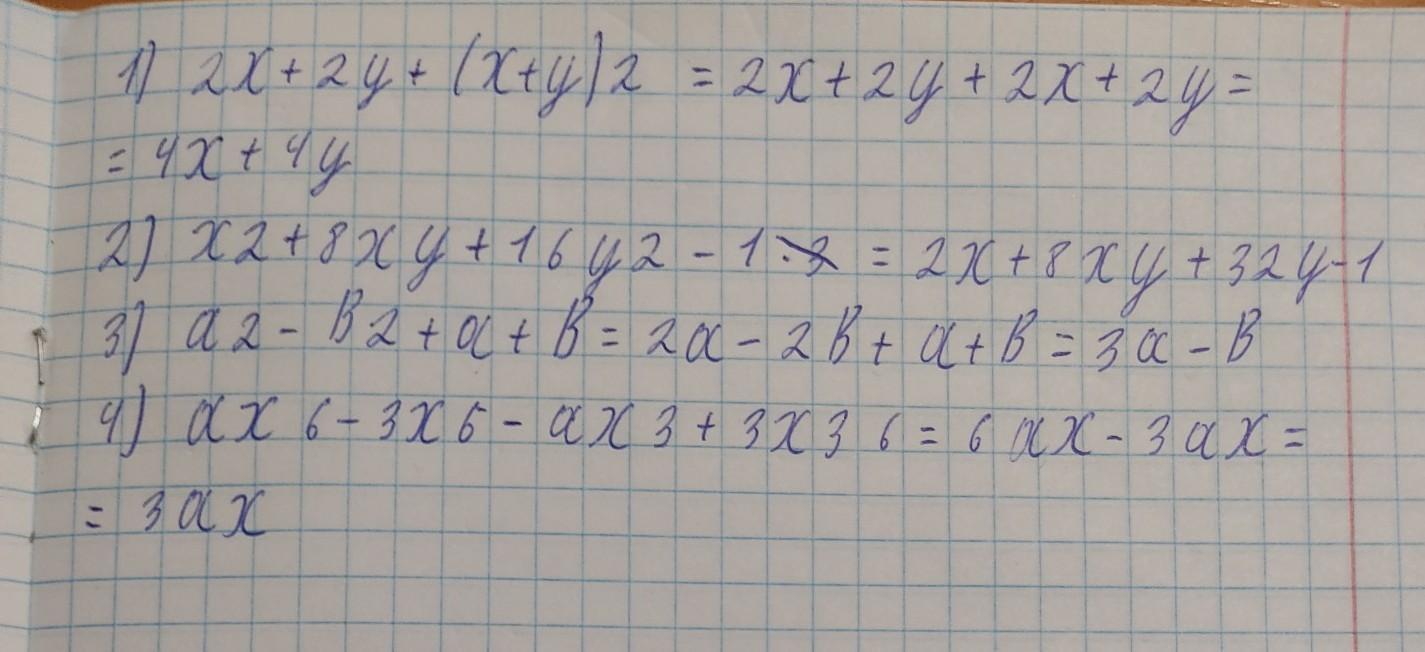 1) 2x + 2y + (x+y)2 = 2x + 2y + 2x + 2y =
= 4x + 4y
2) x2 + 8xy + 16y2 - 1 = 2x + 8xy + 32y - 1
3) a2 - B2 + a + B = 2a - 2B + a + B = 3a - B
4) ax 6 - 3x6 - ax3 + 3x3 6 = 6ax - 3ax =
= 3ax